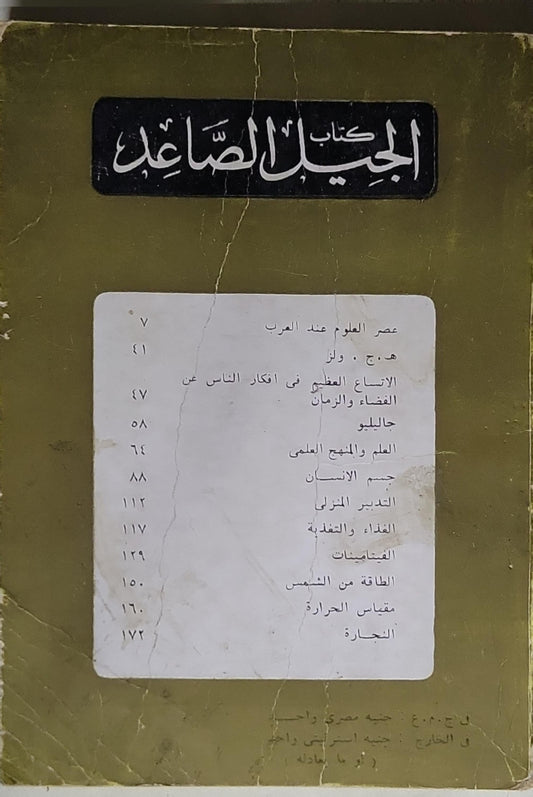 كتاب
الجيل الصاعد
عصر العلوم عند العرب ٧
هـ . ج . ولز ٤١
الاتساع العظيم فى افكار الناس عن
الفضاء والزمان ٤٧
جاليليو ٥٨
العلم والمنهج العلمى ٦٤
جسم الانسان ٨٨
التدبير المنزلى ١١٢
الغذاء والتغذية ١١٧
الفيتامينات ١٢٩
الطاقة من الشمس ١٥٠
مقياس الحرارة ١٦٠
النجارة ١٧٢
فى ج . م . ع : جنيه مصرى واحد
فى الخارج : جنيه استرلينى واحد
( أو ما يعادله )